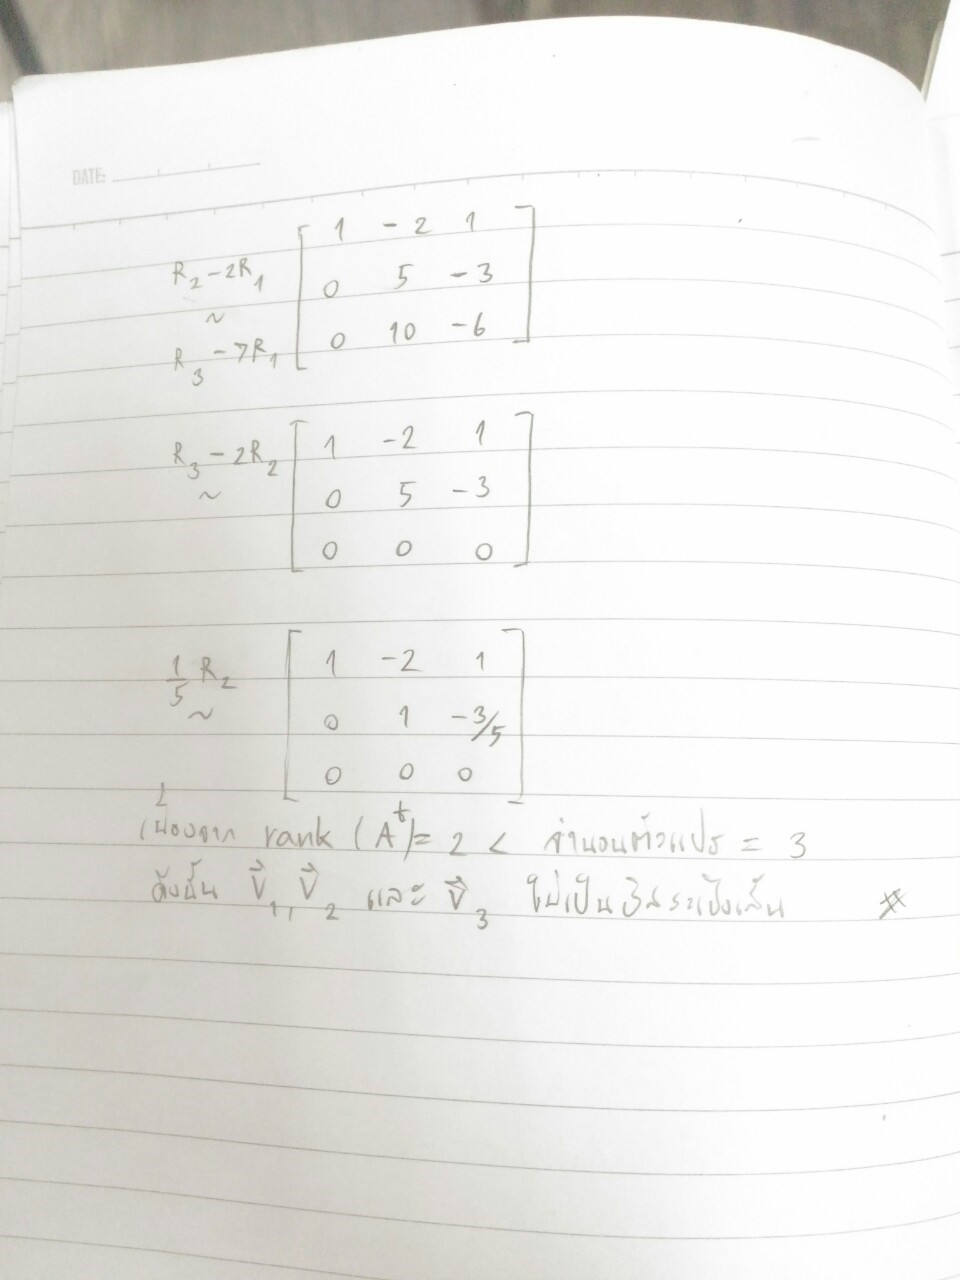 DATE:
1 -2 1
R2-2R1 0 5 -3
~
R3-7R1 0 10 -6
R3-2R2 1 -2 1
~ 0 5 -3
0 0 0
1/5 R2 1 -2 1
~ 0 1 -3/5
0 0 0
เนื่องจาก rank (A^t) = 2 < จำนวนตัวแปร = 3
ดังนั้น V⃗1, V⃗2 และ V⃗3 ไม่เป็นอิสระเชิงเส้น #